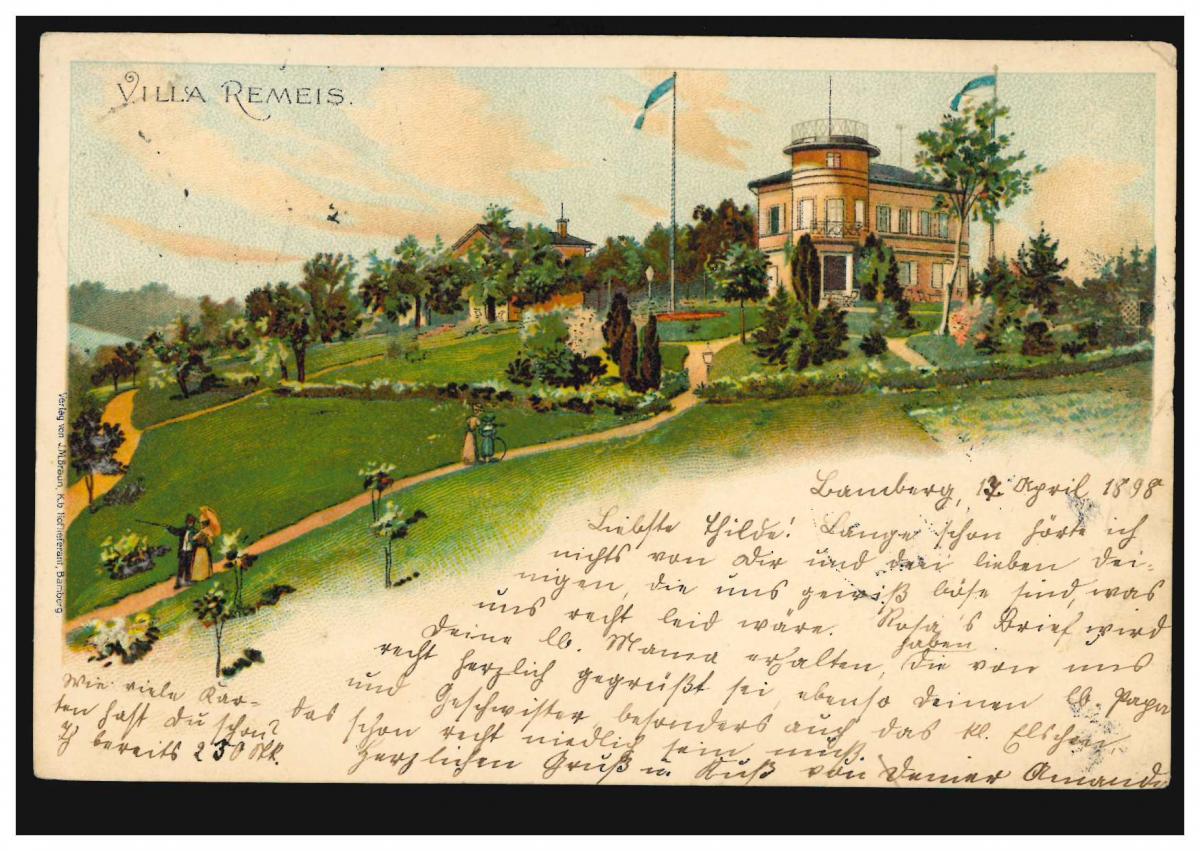 VILLA REMEIS.
Verlag von J.M.Braun, K.b. Hoflieferant, Bamberg
Bamberg, 17. April 1898
Liebste Thilde! Lange schon hörte ich
nichts von Dir und den lieben Dei-
nigen, die uns gewiß böse sind, was
uns recht leid wäre. Rosa's Brief wird
Deine lb. Mama erhalten haben, die von uns
recht herzlich gegrüßt sei, ebenso Deinen lb. Papa
und Geschwister besonders auch das kl. Elschen,
das schon recht niedlich sein muß.
Herzlichen Gruß u. Kuß von Deiner Amanda
Wie viele Kar-
ten hast Du schon?
Ich bereits 250 Stk.